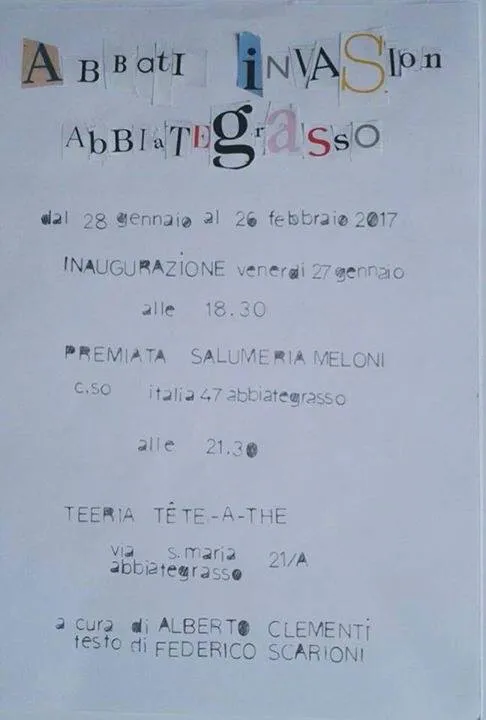 ABBatI iNVASIon
AbBIaTEgrasSsO
dal 28 gennaio al 26 febbraio 2017
INAUGURAZIONE venerdi 27 gennaio
alle 18.30
PREMIATA SALUMERIA MELONI
c.so italia 47 abbiategrasso
alle 21.30
TEERIA TÊTE-A-THE
via s. maria 21/A
abbiategrasso
a cura di ALBERTO CLEMENTi
testo di FEDERICO SCARIONI